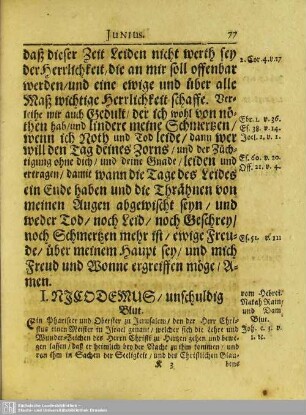 Junius. 77
daß dieser Zeit Leiden nicht werth sey
der Herrlichkeit, die an mir soll offenbar
werden/ und eine ewige und über alle
Maß wichtige Herrlichkeit schaffe. Ver-
leihe mir auch Gedult/ der ich wohl von nö-
then hab/ und lindere meine Schmertzen/
wenn ich Noth und Tod leide/ dann wer
will den Tag deines Zorns/ und der Züch-
tigung ohne dich/ und deine Gnade/ leiden und
ertragen/ damit wann die Tage des Leides
ein Ende haben und die Thrähnen von
meinen Augen abgewischt seyn/ und
weder Tod/ noch Leid/ noch Geschrey/
noch Schmertzen mehr ist/ ewige Freu-
de/ über meinem Haupt sey/ und mich
Freud und Wonne ergreiffen möge/ A-
men.
2. Cor 4. v. 17
Ebr. 1. v. 36.
Es. 38. v. 14.
Joel. 2. v. 2.
Es. 60. v. 20.
Off. 21. v. 4.
Es. 51. v. 111
I. NICODEMUS/ unschuldig
Blut.
Ein Phariseer und Oberster zu Jerusalem/ den der Herr Chri-
stus einen Meister in Israel genant/ welcher sich die Lehre und
Wunder-Zeichen des Herrn Christi zu Hertzen gehen und bewe-
gen lassen/ daß er heimlich bey der Nacht zu ihm kommen/ und
von ihm in Sachen der Seeligkeit/ und des Christlichen Glau-
K 3 bens
vom Hebrei.
Nakah Rain
und Dam
Blut.
Joh. c. 3. v.
1. &c.